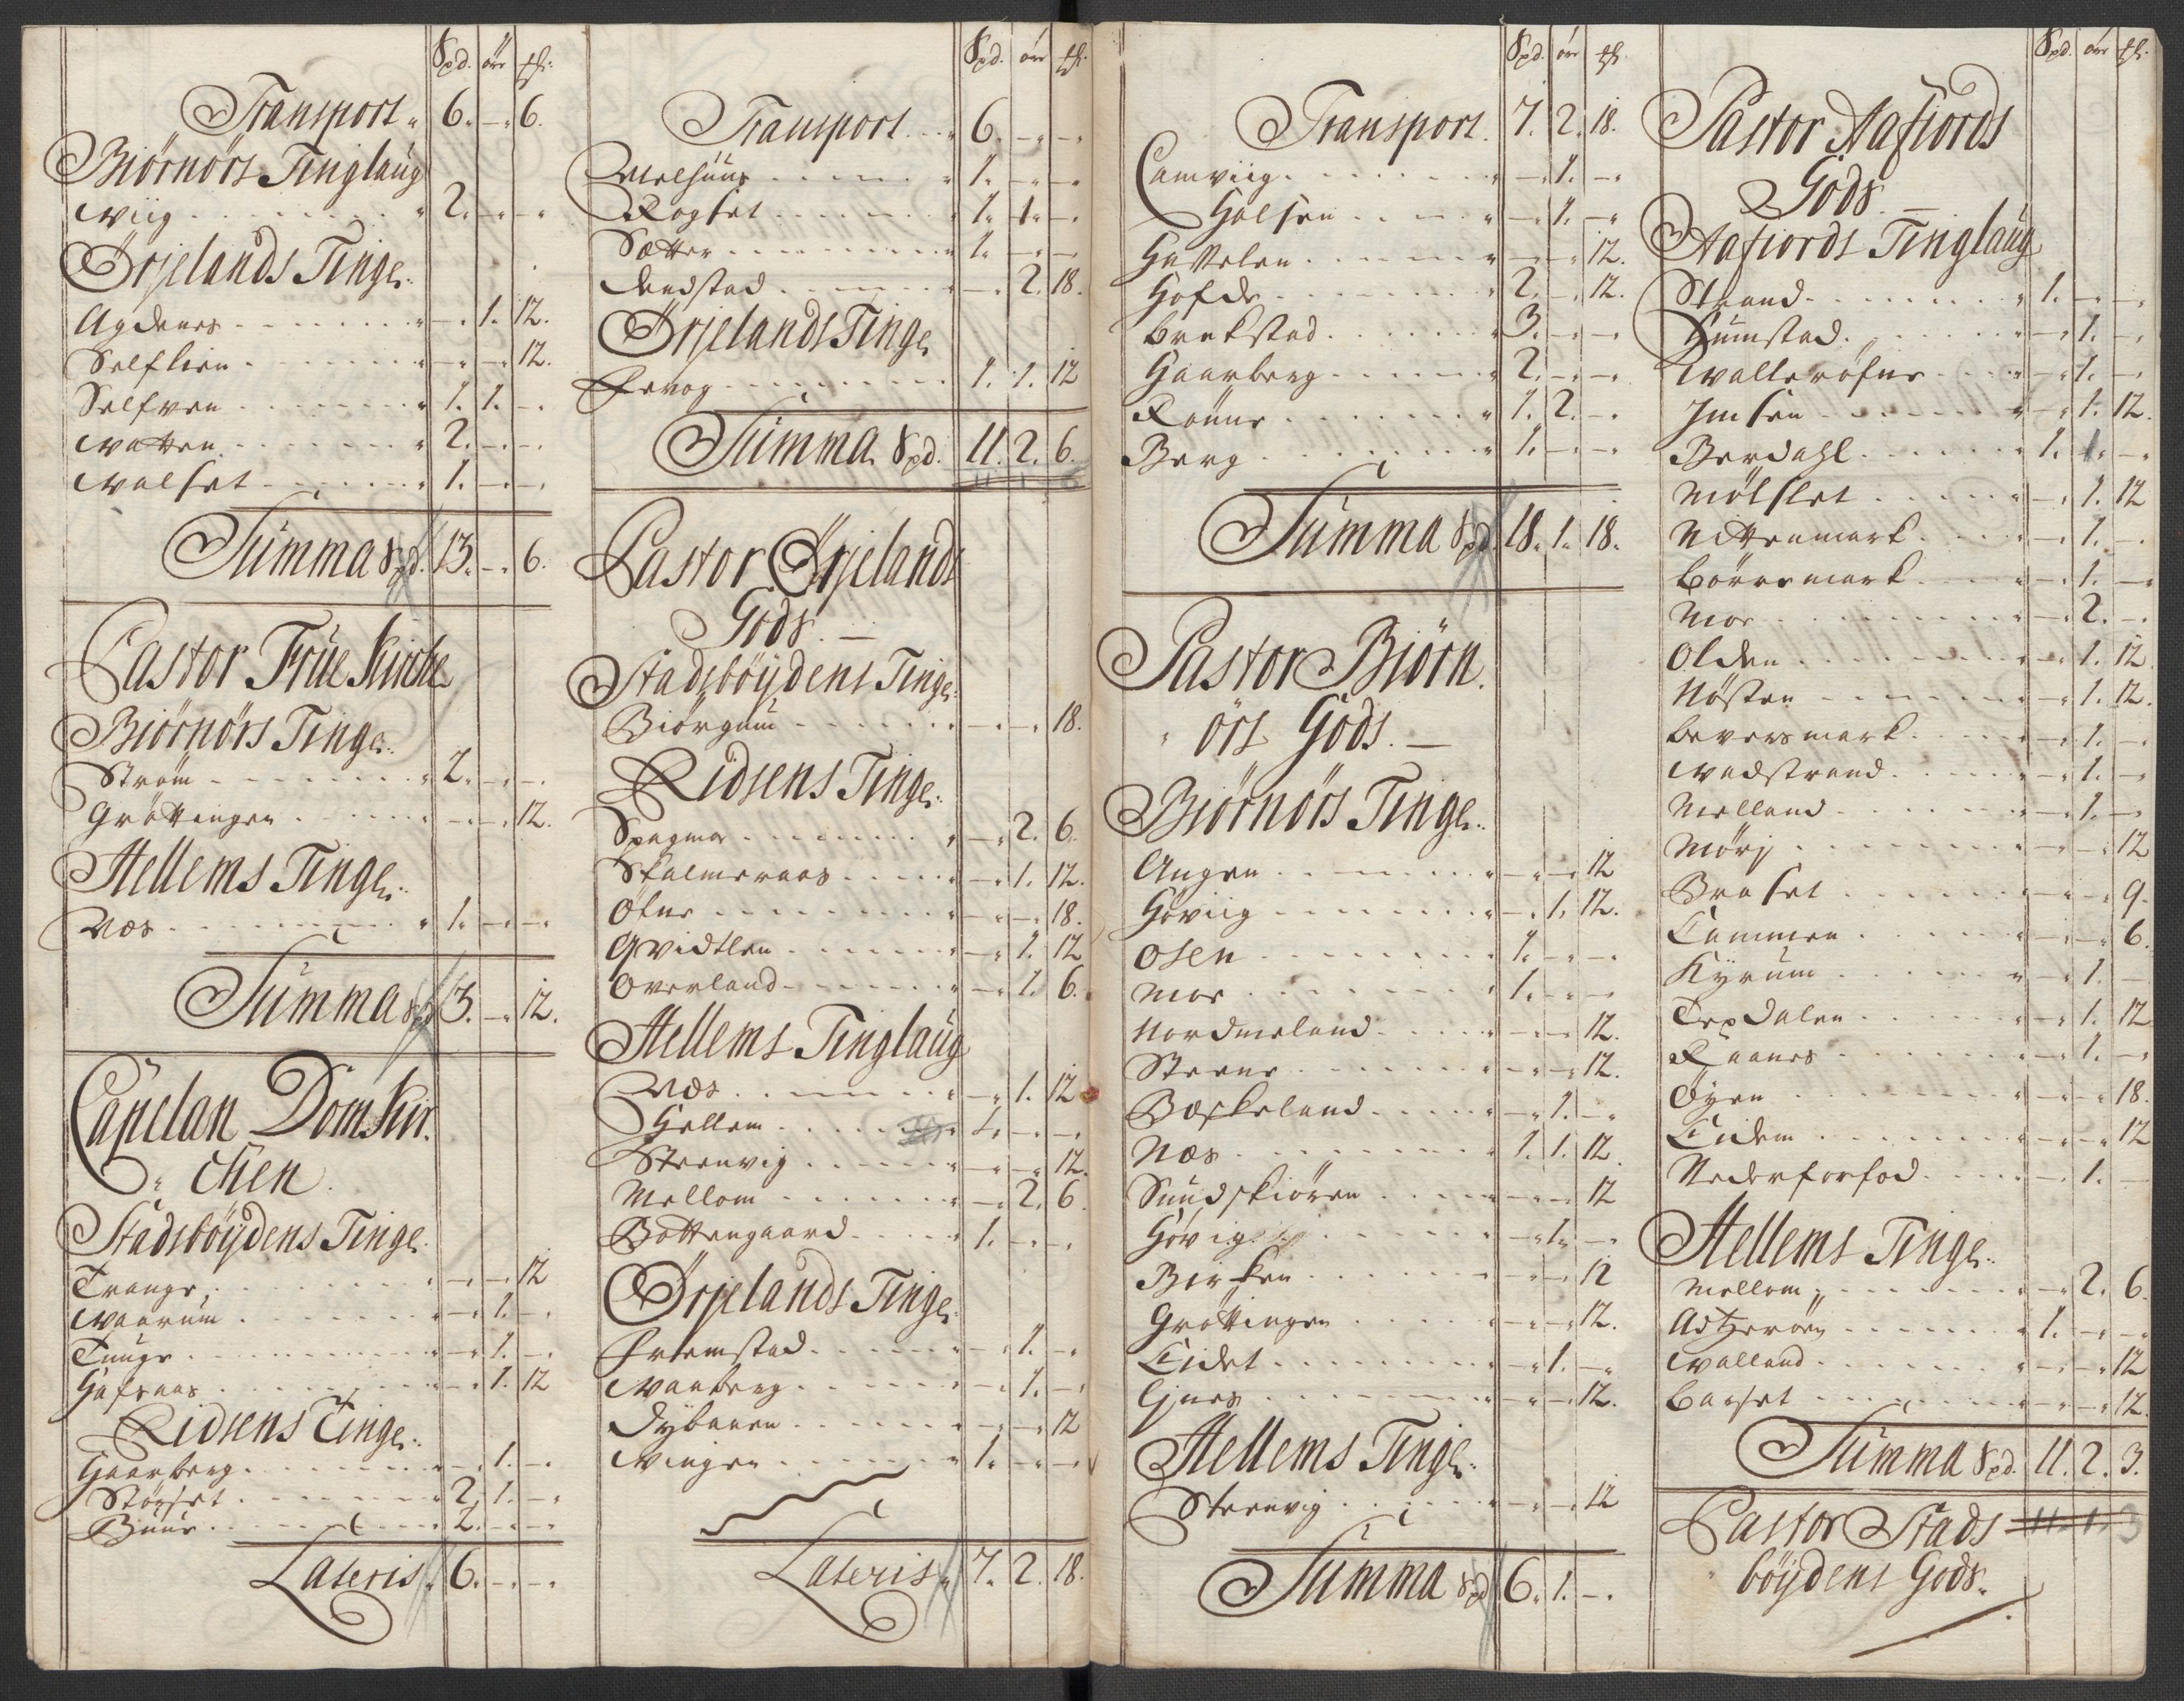 Spd. ört ℔.
Transport 6. – 6.
Biörnörs Tinglaug
Wiig 2. – –
Ørjelands Tinge
Agdenes – 1. 12.
Selflien – – 12.
Selfven 1. 1. –
Watten 2. – –
Walset 1. – –
Summa Spd. 13. – 6.
Pastor Frue Kirche
Biörnörs Tinge
Ström 2. – –
Gröttingen – – 12.
Hellems Tinge
Næs 1. – –
Summa Spd 3. – 12.
Capelan Domkir-
chen
Stadsböydens Tinge
Trange – – 12
Waarum – 1. –
Tunge – 1. –
Hafsaas – 1. 12
Ridsens Tinge
Haarberg – 1. –
Störset 2. 1. –
Buur 2. – –
Lateris 6. – –
Spd. ört ℔.
Transport 6. – –
Melhuus 1. – –
Rogset 1. 1. –
Sætter 1. – –
Lendstad – 2. 18.
Ørjelands Tinge
Fevog 1. 1. 12
Summa Spd. 11. 2. 6.
Pastor Ørjelands
Gods. –
Stadsböydens Tinge
Biörgum – – 18.
Ridsens Tinge
Spagmoe – 2. 6.
Skalmeraas – 1. 12.
– – 18.
Qvidtlen – 1. 12
Overland – 1. 6.
Hellems Tinglaug
Næs – 1. 12
Hellem 1. – –
Steenvig – – 12.
Mellom – 2. 6.
Bottengaard 1. – –
Ørjelands Tinge
– 1. –
Waaberg – 1. –
Dybaaen – – 12
Wingen 1. – –
Lateris 7. 2. 18.
Spd. ört ℔.
Transport 7. 2. 18.
Camviig – 1. –
Holsen – 1. –
Hattelen – – 12.
Hofde 2. – 12.
Brekstad 3. – –
Gaarberg 2. – –
Rönne 1. 2. –
Berg 1. – –
Summa Spd 18. 1. 18.
Pastor Biörn-
örs Gods. –
Biörnörs Tinge
Angen – – 12
Höviig – 1. 12.
Osen 1. – –
Moe 1. – –
Nordmeland – – 12.
Steene – – 12.
Bæskeland – 1. –
Næs 1. 1. 12
Sundskiören – – 12
Hövig – 1. –
Birken – – 12
Gröttingen – – 12.
Eidet – 1. –
– – 12.
Hellems Tinge
Steenvig – – 12
Summa Spd 6. 1. –
Spd. ört ℔.
Pastor Aafiords
Gods. –
Aafiords Tinglaug
Strand 1. – –
Humstad – 1. –
Walleröfne – 1. –
Imsen – 1. 12.
Berdahl 1. 1. –
Mölslet – 1. 12
Nittenmark – 1. –
Börresmark – 1. –
Moe – 2. –
Olden – 1. 12
Nösten – 1. 12.
Beversmark – 1. –
Wadstrand – 1. –
Melland – 1. –
Mörj – – 12
Braset – – 9.
– – 6.
Kyrum – 1. –
Terdalen – 1. 12
Raanes – 1. –
Öyen – – 18.
Eidem – – 12
Nederforfod – 1. –
Hellems Tinge
Mellom – 2. 6.
1. – –
Walland – – 12
– – 12.
Summa Spd. 11. 2. 3.
Pastor Stads
böydens Gods.